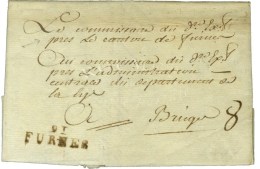 Le commissaire du
près le canton de furnes
Au commissaire du
près l'administration
centrale du département de
la lys
A Bruges 8
91
FURNES